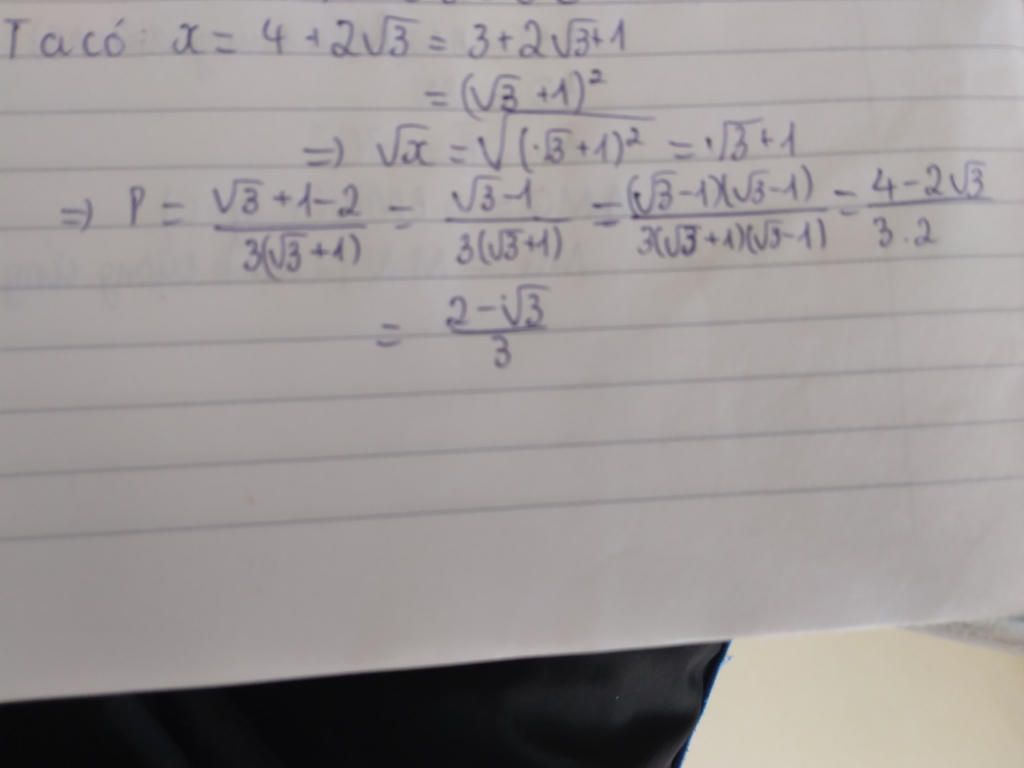 Ta có: x = 4 + 2√3 = 3 + 2√3 + 1
= (√3 + 1)²
=> √x = √(√3 + 1)² = √3 + 1
=> P = (√3 + 1 - 2)/(3(√3 + 1)) = (√3 - 1)/(3(√3 + 1)) = ((√3 - 1)(√3 - 1))/(3(√3 + 1)(√3 - 1)) = (4 - 2√3)/(3.2)
= (2 - √3)/3